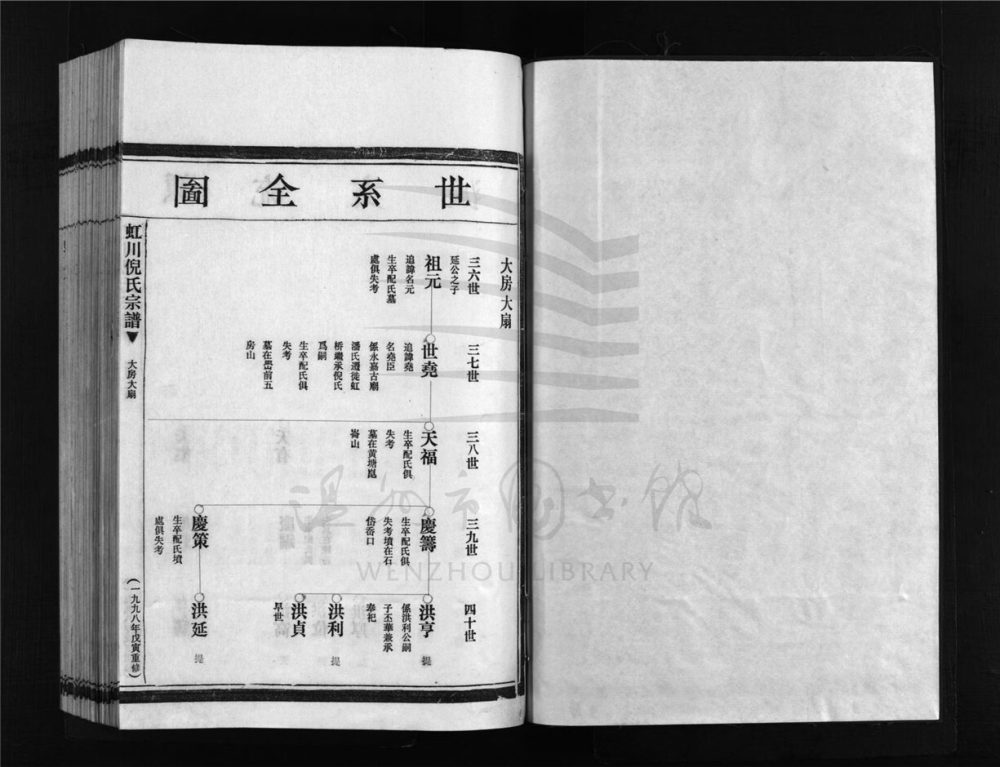 世系全圖
大房大扇
三六世
延公之子
祖元
追諱名元
生卒配氏墓
處俱失考
三七世
世堯
追諱堯
名堯臣
係永嘉古廟
潘氏遷徙虹
橋繼承倪氏
爲嗣
生卒配氏俱
失考
墓在嶴前五
房山
三八世
天福
生卒配氏俱
失考
墓在黄塘崑
崙山
三九世
慶籌
生卒配氏俱
失考墳在石
岱嶴口
慶策
生卒配氏墳
處俱失考
四十世
洪亨
係洪利公嗣
子丕華兼承
奉祀
提
洪利
提
洪貞
早世
洪延
提
虹川倪氏宗譜
大房大扇
(一九九八年戊寅重修)
溫州市图书館
WENZHOU LIBRARY